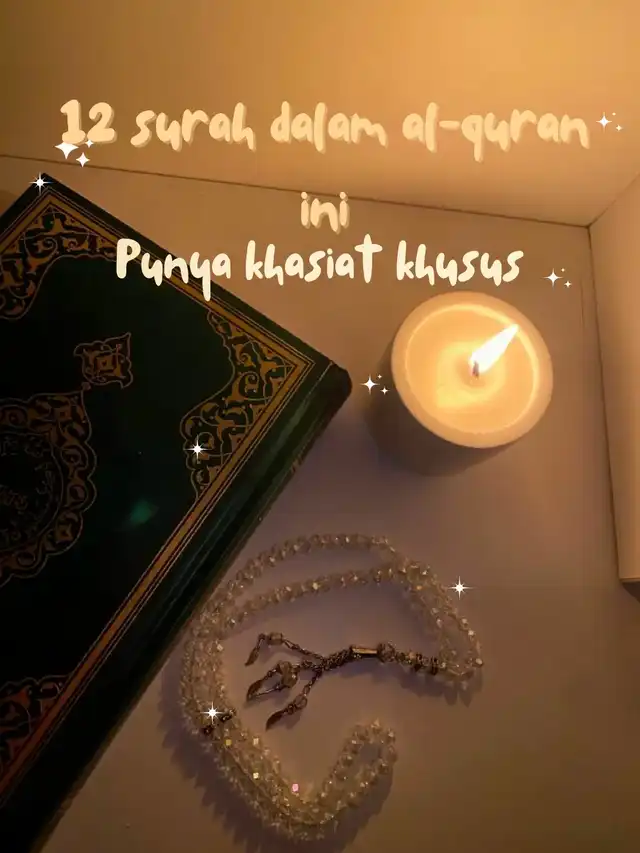 12 surah dalam al-quran
ini
Punya khasiat khusus